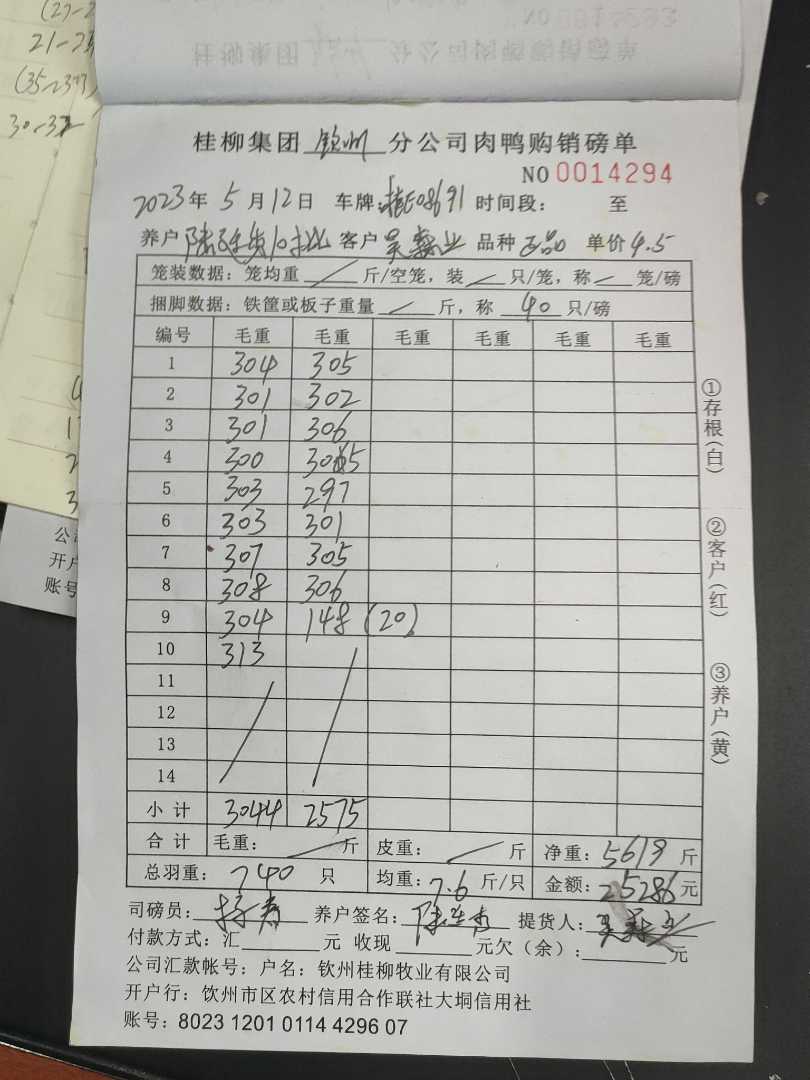 (27-2
21-25
(35-37)
30-32
桂柳集团 钦州 分公司肉鸭购销磅单
NO 0014294
2023年 5 月 12 日 车牌: 桂E08691 时间段: 至
养户 客户 吴 业 品种 正品 单价 4.5
笼装数据: 笼均重 / 斤/空笼, 装 / 只/笼, 称 / 笼/磅
捆脚数据: 铁筐或板子重量 / 斤, 称 40 只/磅
编号 毛重 毛重 毛重 毛重 毛重 毛重
1 304 305
2 301 302
3 301 306
4 300 305
5 303 297
6 303 301
7 307 305
8 308 306
9 304 148 (20)
10 313
11
12
13
14
小计 3044 2575
合计 毛重: / 斤 皮重: / 斤 净重: 5619 斤
总羽重: 740 只 均重: 7.6 斤/只 金额: 25286 元
司磅员: 养户签名: 提货人: 吴
付款方式: 汇 元 收现 元欠(余): 元
公司汇款帐号: 户名: 钦州桂柳牧业有限公司
开户行: 饮州市区农村信用合作联社大垌信用社
账号: 8023 1201 0114 4296 07
①存根(白)
②客户(红)
③养户(黄)
公
开户
账号